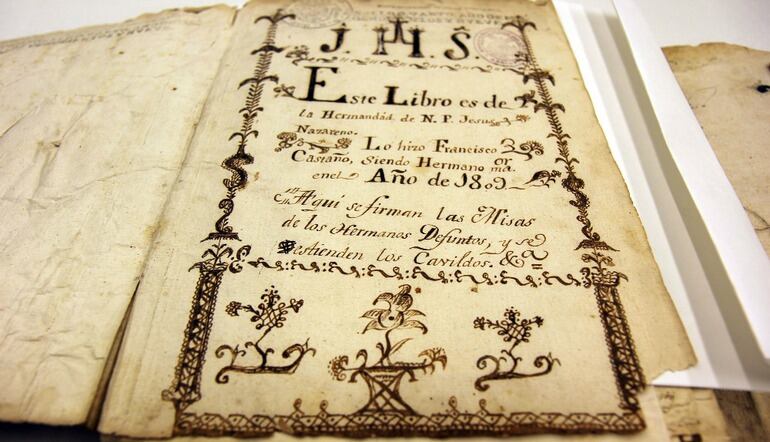 J. H. S.
Este Libro es de
la Hermandad de N. P. Jesus
Nazareno.
Lo hizo Francisco
Castaño, siendo Hermano m.or
en el Año de 1809
Aqui se firman las Misas
de los Hermanos Defuntos, y se
estienden los Cavildos. &a